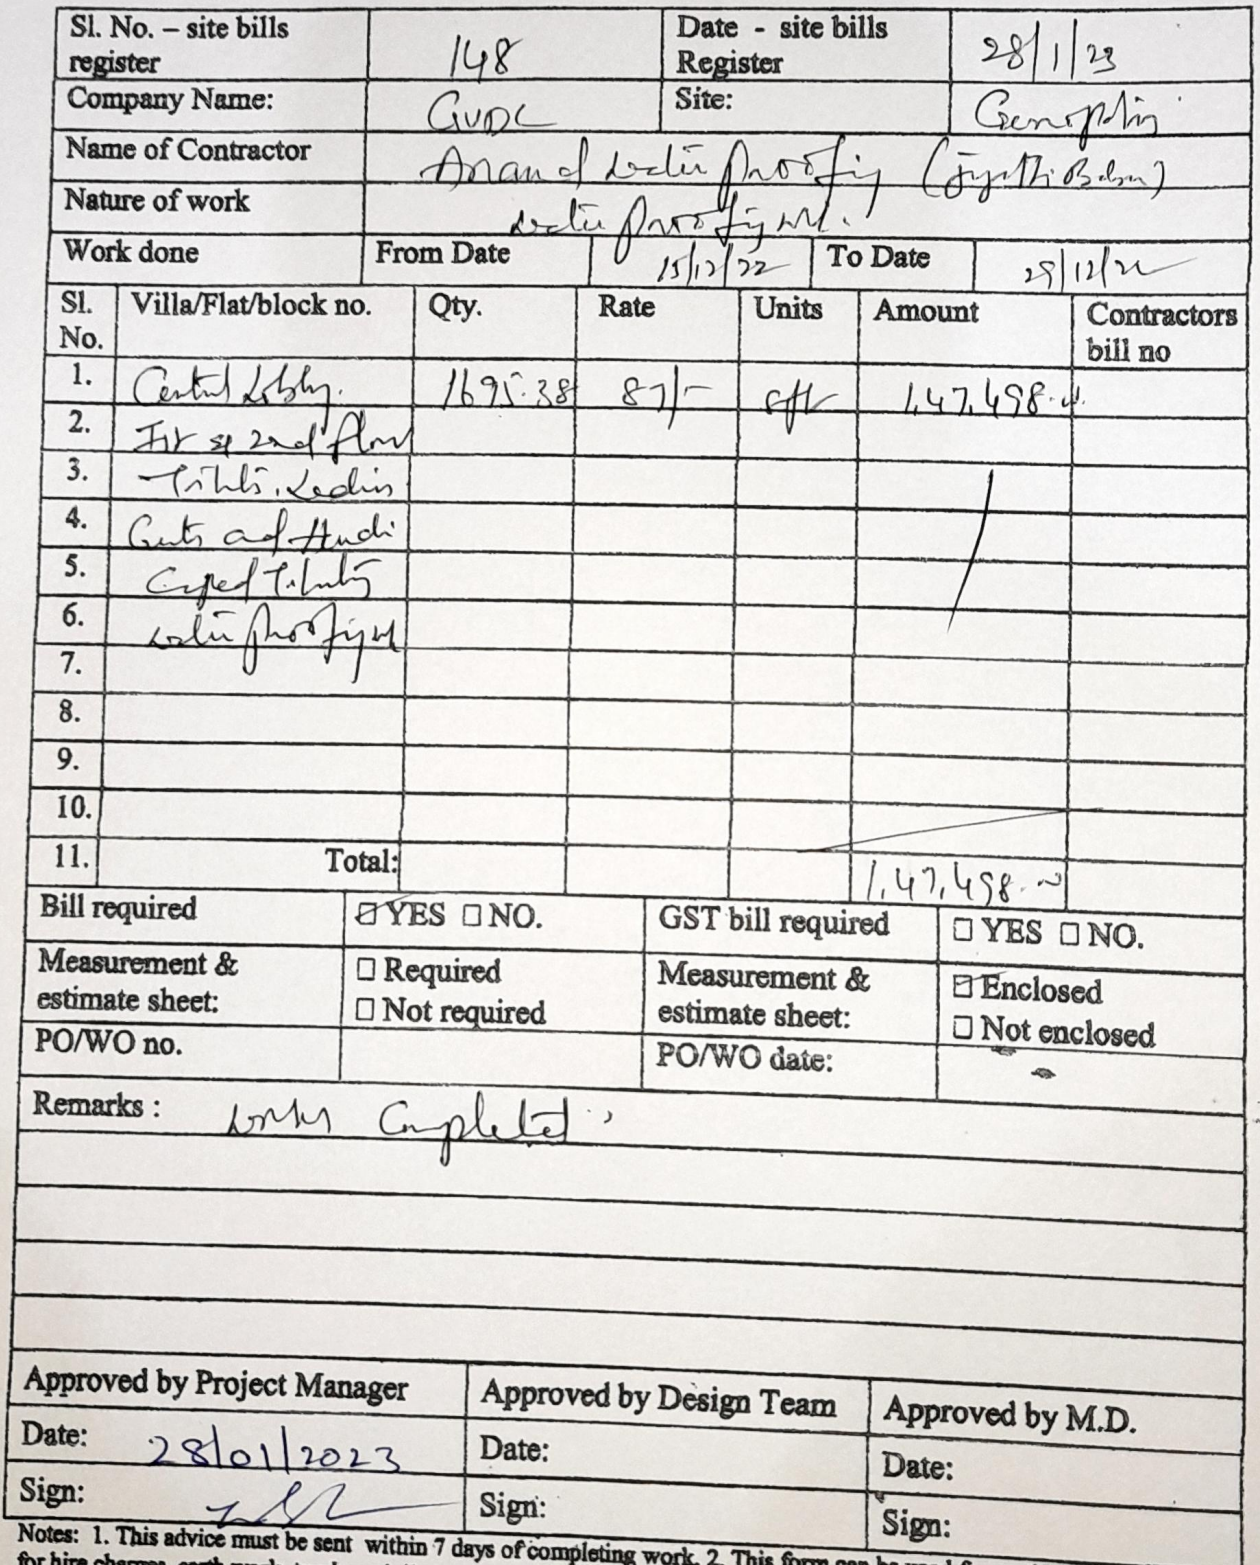 Sl. No. – site bills register 148 Date - site bills Register 28/1/23
Company Name: GVDC Site: Genopolis
Name of Contractor Anand water proofing (Jyothi Babu)
Nature of work water proofing wk.
Work done From Date 15/12/22 To Date 29/12/22
Sl. No. Villa/Flat/block no. Qty. Rate Units Amount Contractors bill no
1. Central Lobby. 1695.38 87/- sft 1,47,498.00
2. 2nd floor
3.
4. and
5.
6. water proofing wk
7.
8.
9.
10.
11. Total: 1,47,498.00
Bill required ☑ YES ☐ NO. GST bill required ☐ YES ☐ NO.
Measurement & estimate sheet: ☐ Required ☐ Not required Measurement & estimate sheet: ☑ Enclosed ☐ Not enclosed
PO/WO no. PO/WO date:
Remarks : works Completed
Approved by Project Manager Approved by Design Team Approved by M.D.
Date: 28/01/2023 Date: Date:
Sign: Sign: Sign:
Notes: 1. This advice must be sent within 7 days of completing work. 2. This form can be used
for hire charges, earth work